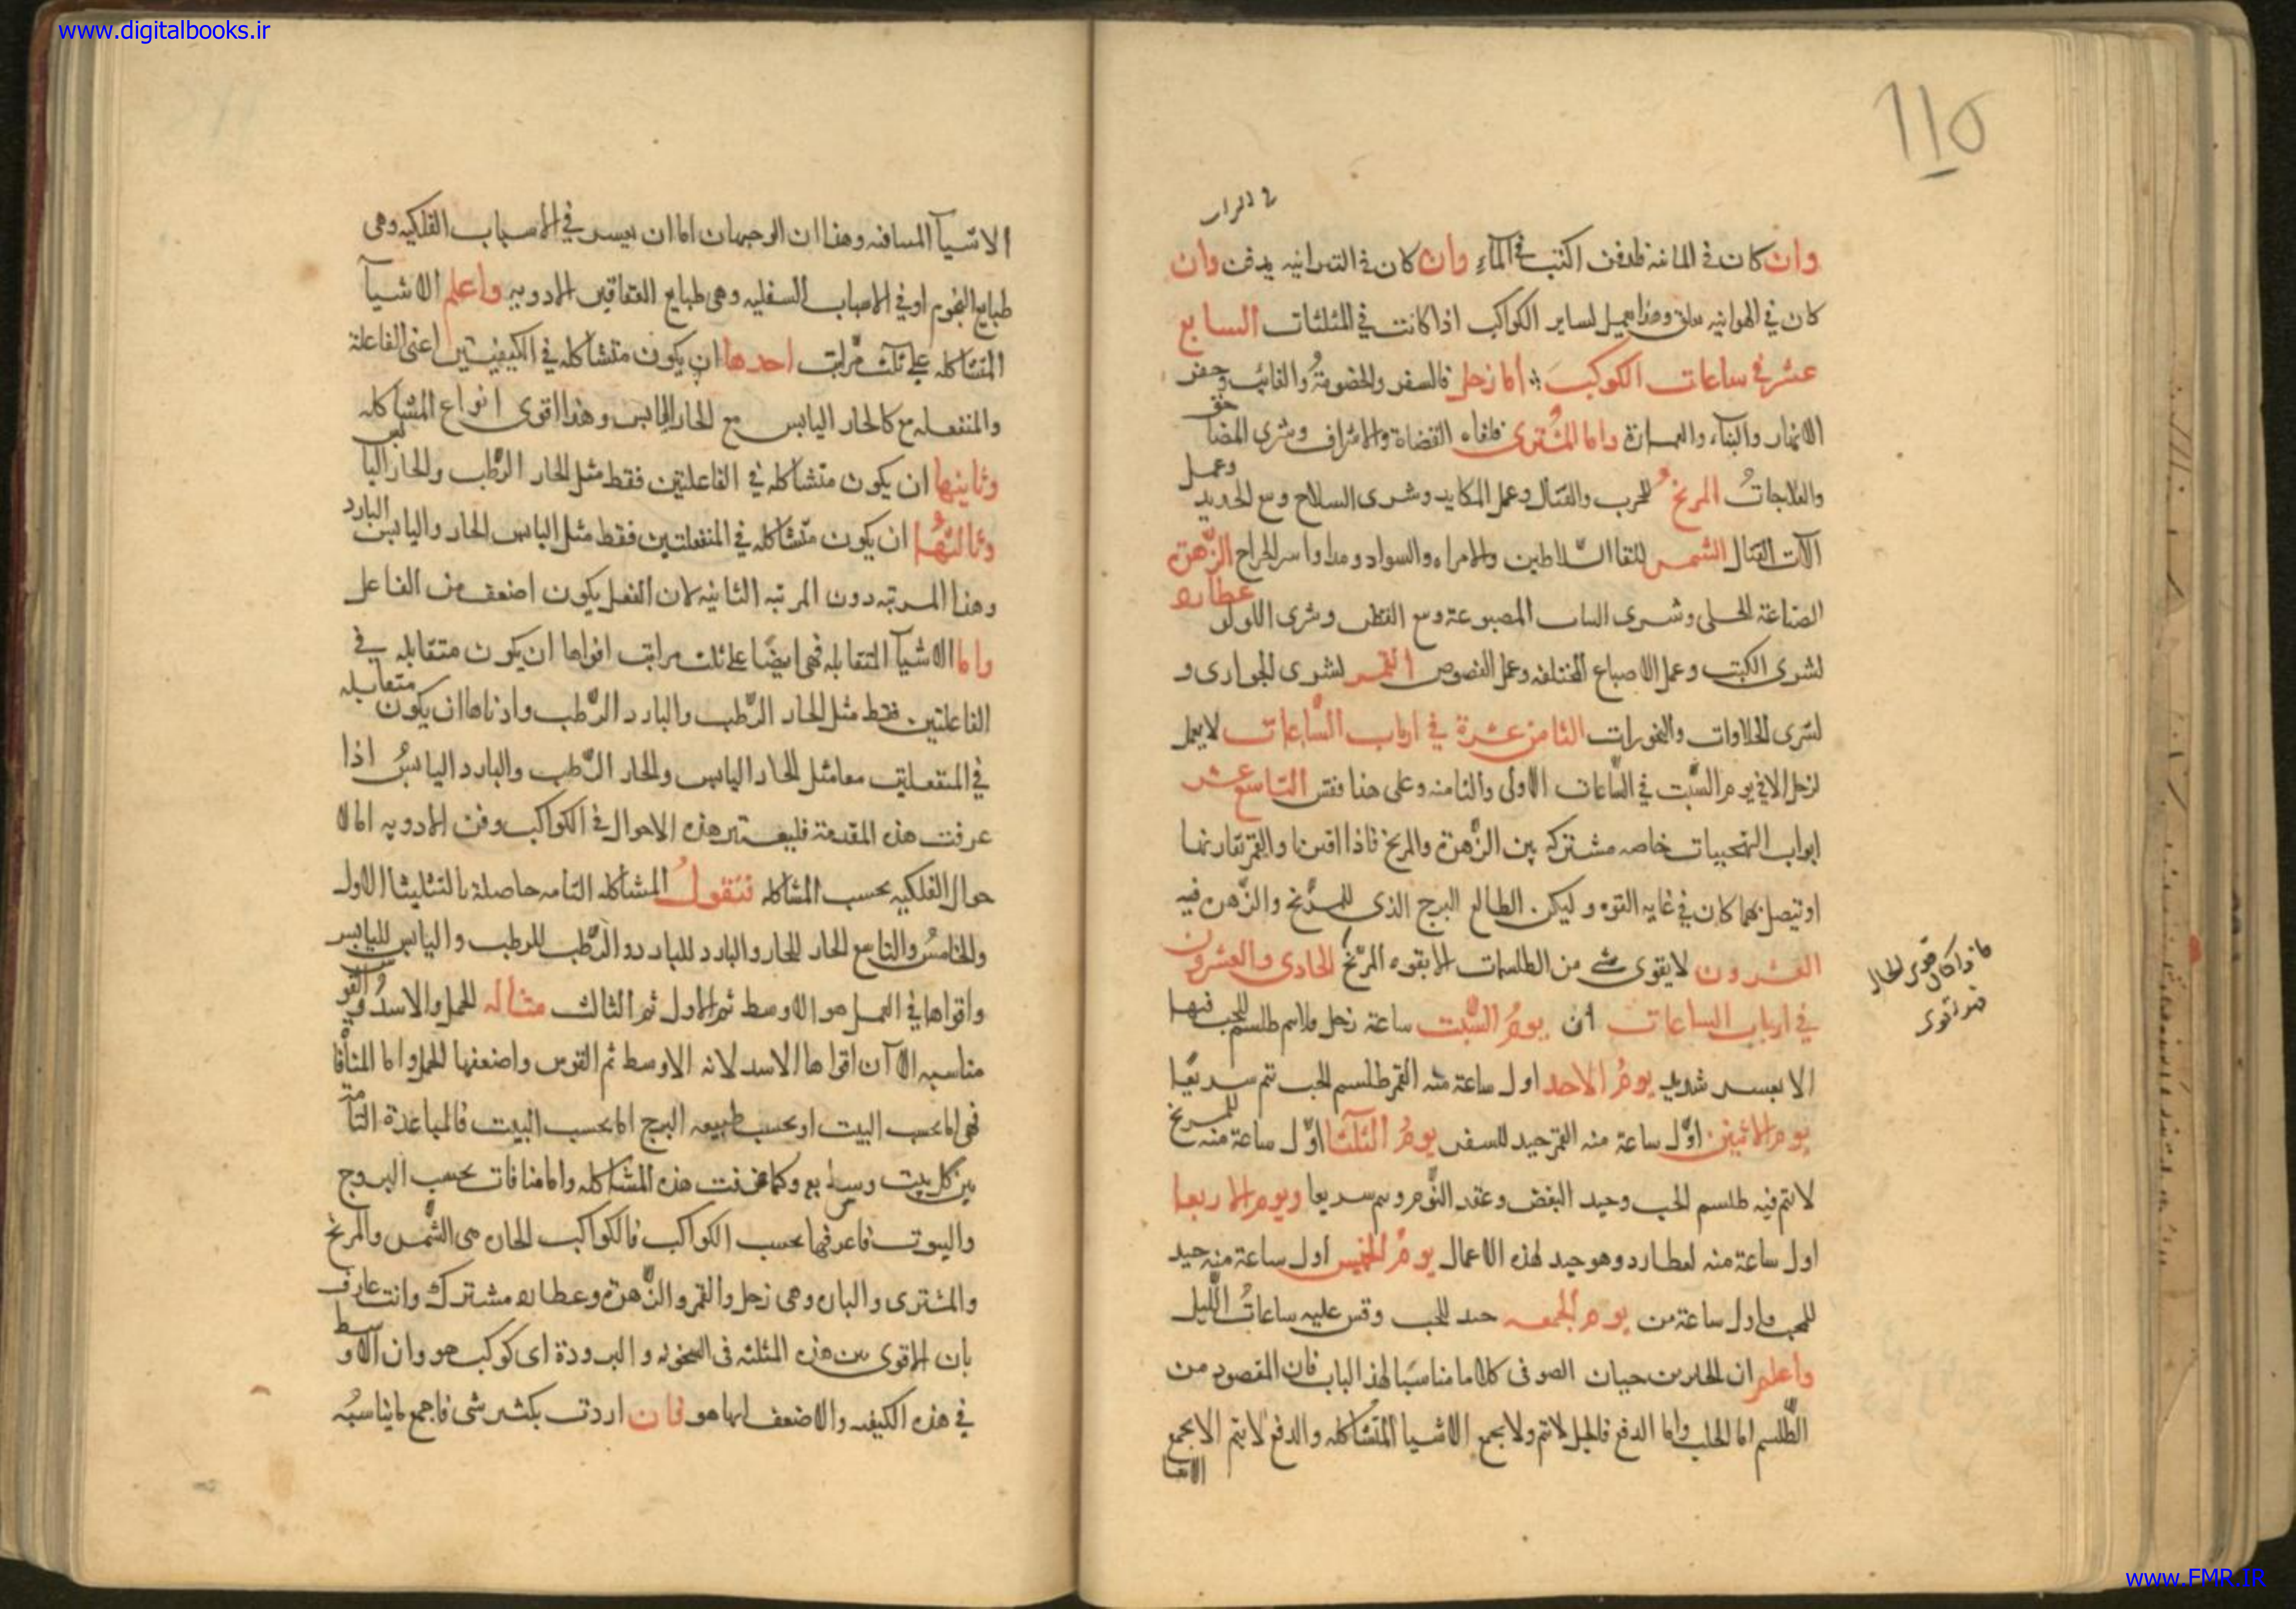 www.digitalbooks.ir
115
في التراب
وان كان في المائية فلدفن الكتب في الماء وان كان في الترابيه يدفن وان
كان في الهوائيه يعلق وهذا يعمل لساير الكواكب اذا كانت في المثلثات السابع
عشر في ساعات الكوكب اما زحل فالسفر والخصومة والغائب وحفر
الانهار والبناء والعمارة واما المشترى فلقاء القضاة والاشراف وشرى المضآ
والعلاجات المريخ للحرب والقتال وعمل المكايد وشرى السلاح ومع الحديد وعمل
آلات القتال الشمس للقا السلاطين والامراء والسواد ومداوا الجراح الزهرة
الصناعة الحلى وشرى المصبوعة ومع القطن وشرى اللولو عطارد
لشرى الكتب وعمل الاصباغ المختلفه وعمل الفصوص القمر لشرى الجوارى و
لشرى الحلاوات والبخورات الثامن عشرة في ارباب الساعات لا يعمل
لزحل الا في يوم السبت في الساعات الاولى والثامنه وعلى هذا فقس التاسع عشر
ابواب التهييجات خاصه مشتركه بين الزهرة والمريخ فاذا اقترنا والقمر تقارنهما
او تيصل بهما كان في غايه القوه وليكن الطالع البرج الذى للمريخ والزهره فيه
العشرون لا يقوى شى من الطلسمات الا بقوه المريخ الحادى والعشرون
فاذا كان قوى الحال
فهو قوى
في ارباب الساعات ان يوم السبت ساعة زحل طلسم للحب فيها
الا بعسر شديد يوم الاحد اول ساعة منه القمر طلسم الحب تتم سريعا
يوم الاثنين اول ساعة منه القمر جيد للسفر يوم الثلثا اول ساعة منه للمريخ
لا تتم فيه طلسم الحب وجيد البغض وعقد النوم سريعا ويوم الاربعا
اول ساعة منه لعطارد وهو جيد لهذه الاعمال يوم الخميس اول ساعة منه جيد
للحب واول ساعة من يوم الجمعه جيد للحب وقس عليه ساعات الليل
واعلم ان لجابر بن حيان الصوفى كلاما مناسبا لهذا الباب فان المقصود من
الطلسم اما الجلب واما الدفع فالجلب لا يتم ولا يجمع الاشيا المتشاكله والدفع لا يتم الا بجمع
الاشيا
الاشيآ المنافيه وهذا ان الوجهان اما ان يعسر في الاسباب الفلكيه وهى
طبايع النجوم او في الاسباب السفليه وهى طبايع العقاقير الادويه واعلم الاشيآ
المتشاكله على ثلث مراتب احدها ان يكون متشاكله في الكيفيتين اعنى الفاعلة
والمنفعله كالحار اليابس مع الحار اليابس وهذا اقوى انواع المشاكله
وثانيها ان يكون متشاكله في الفاعلتين فقط مثل الحار الرطب والحار اليابس
وثالثها ان يكون متشاكله في المنفعلتين فقط مثل اليابس الحار واليابس البارد
وهذا المرتبه دون المرتبه الثانيه لان الفعل يكون اضعف من الفاعل
واما الاشيآ المتقابله فهى ايضا على ثلث مراتب اقواها ان يكون متقابله في
الفاعلتين فقط مثل الحار الرطب والبارد الرطب وادناها ان يكون متقابله
في المنفعلتين معا مثل الحار اليابس والحار الرطب والبارد اليابس اذا
عرفت هذه المقدمة فليعتبر هذه الاحوال في الكواكب وفى الادويه اما الا
حوال الفلكيه بحسب المشاكله فنقول المشاكله التامه حاصلة بالتثليثا الاول
والخامس والتاسع الحار للحار والبارد للبارد والرطب للرطب واليابس لليابس
واقواها في العمل هو الاوسط ثم الاول ثم الثالث مثاله الحمل والاسد والقوس
مناسبه الا ان اقواها الاسد لانه الاوسط ثم القوس واضعفها الحمل واما المنافا
فهى اما بحسب البيت او بحسب طبيعه البرج اما بحسب البيت فالمباعدة التامة
بين كل بيت وسابع وكما عرفت هذه المشاكله والمنافات بحسب البروج
والبيوت فاعرفها بحسب الكواكب فالكواكب الحاره هى الشمس والمريخ
والمشترى والبارده وهى زحل والقمر والزهرة وعطارد مشترك وانت عارف
بان الاقوى من هذه المثلثه في السخونه والبرودة اى كوكب هو وان الاوسط
في هذه الكيفيه والاضعف ايها هو فان اردت تكثير شى فاجمع ما يناسبه
www.FMR.IR